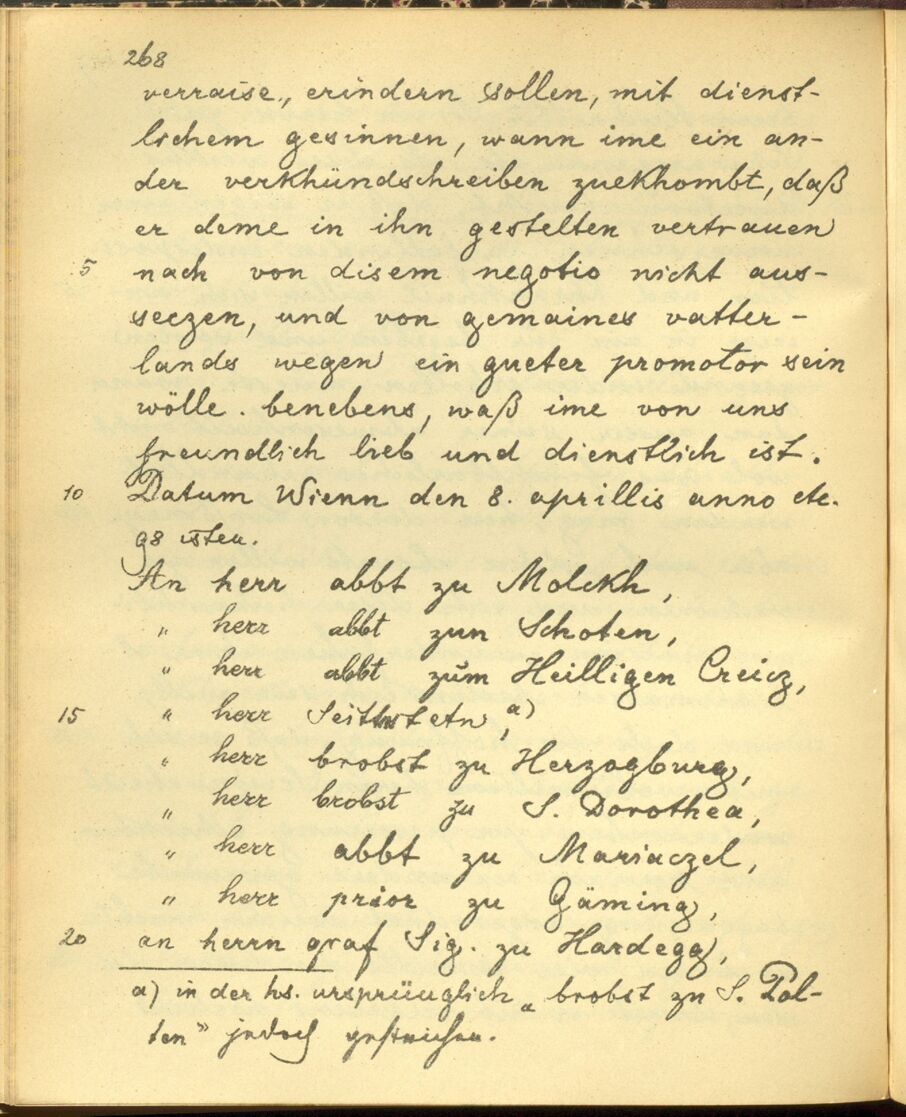 268
verraise., erindern sollen, mit dienst-
lichem gesinnen, wann ime ein an-
der verkhündschreiben zuekhombt, daß
er deme in ihn gestelten vertrauen
5 nach von disem negotio nicht aus-
seczen, und von gemaines vatter-
lands wegen ein gueter promotor sein
wölle. benebens, waß ime von uns
freundlich lieb und dienstlich ist.
10 Datum Wienn den 8. aprillis anno etc.
98 isten.
An herr abbt zu Molckh,
" herr abbt zun Schoten,
" herr abbt zum Heilligen Creicz,
15 " herr Seittnstetn, a)
" herr brobst zu Herzogburg,
" herr brobst zu S. Dorothea,
" herr abbt zu Mariaczel,
" herr prior zu Gäming,
20 an herrn graf Sig. zu Hardegg,
a) in der hs. ursprünglich „brobst zu S. Pol-
ten" jedoch gestrichen.